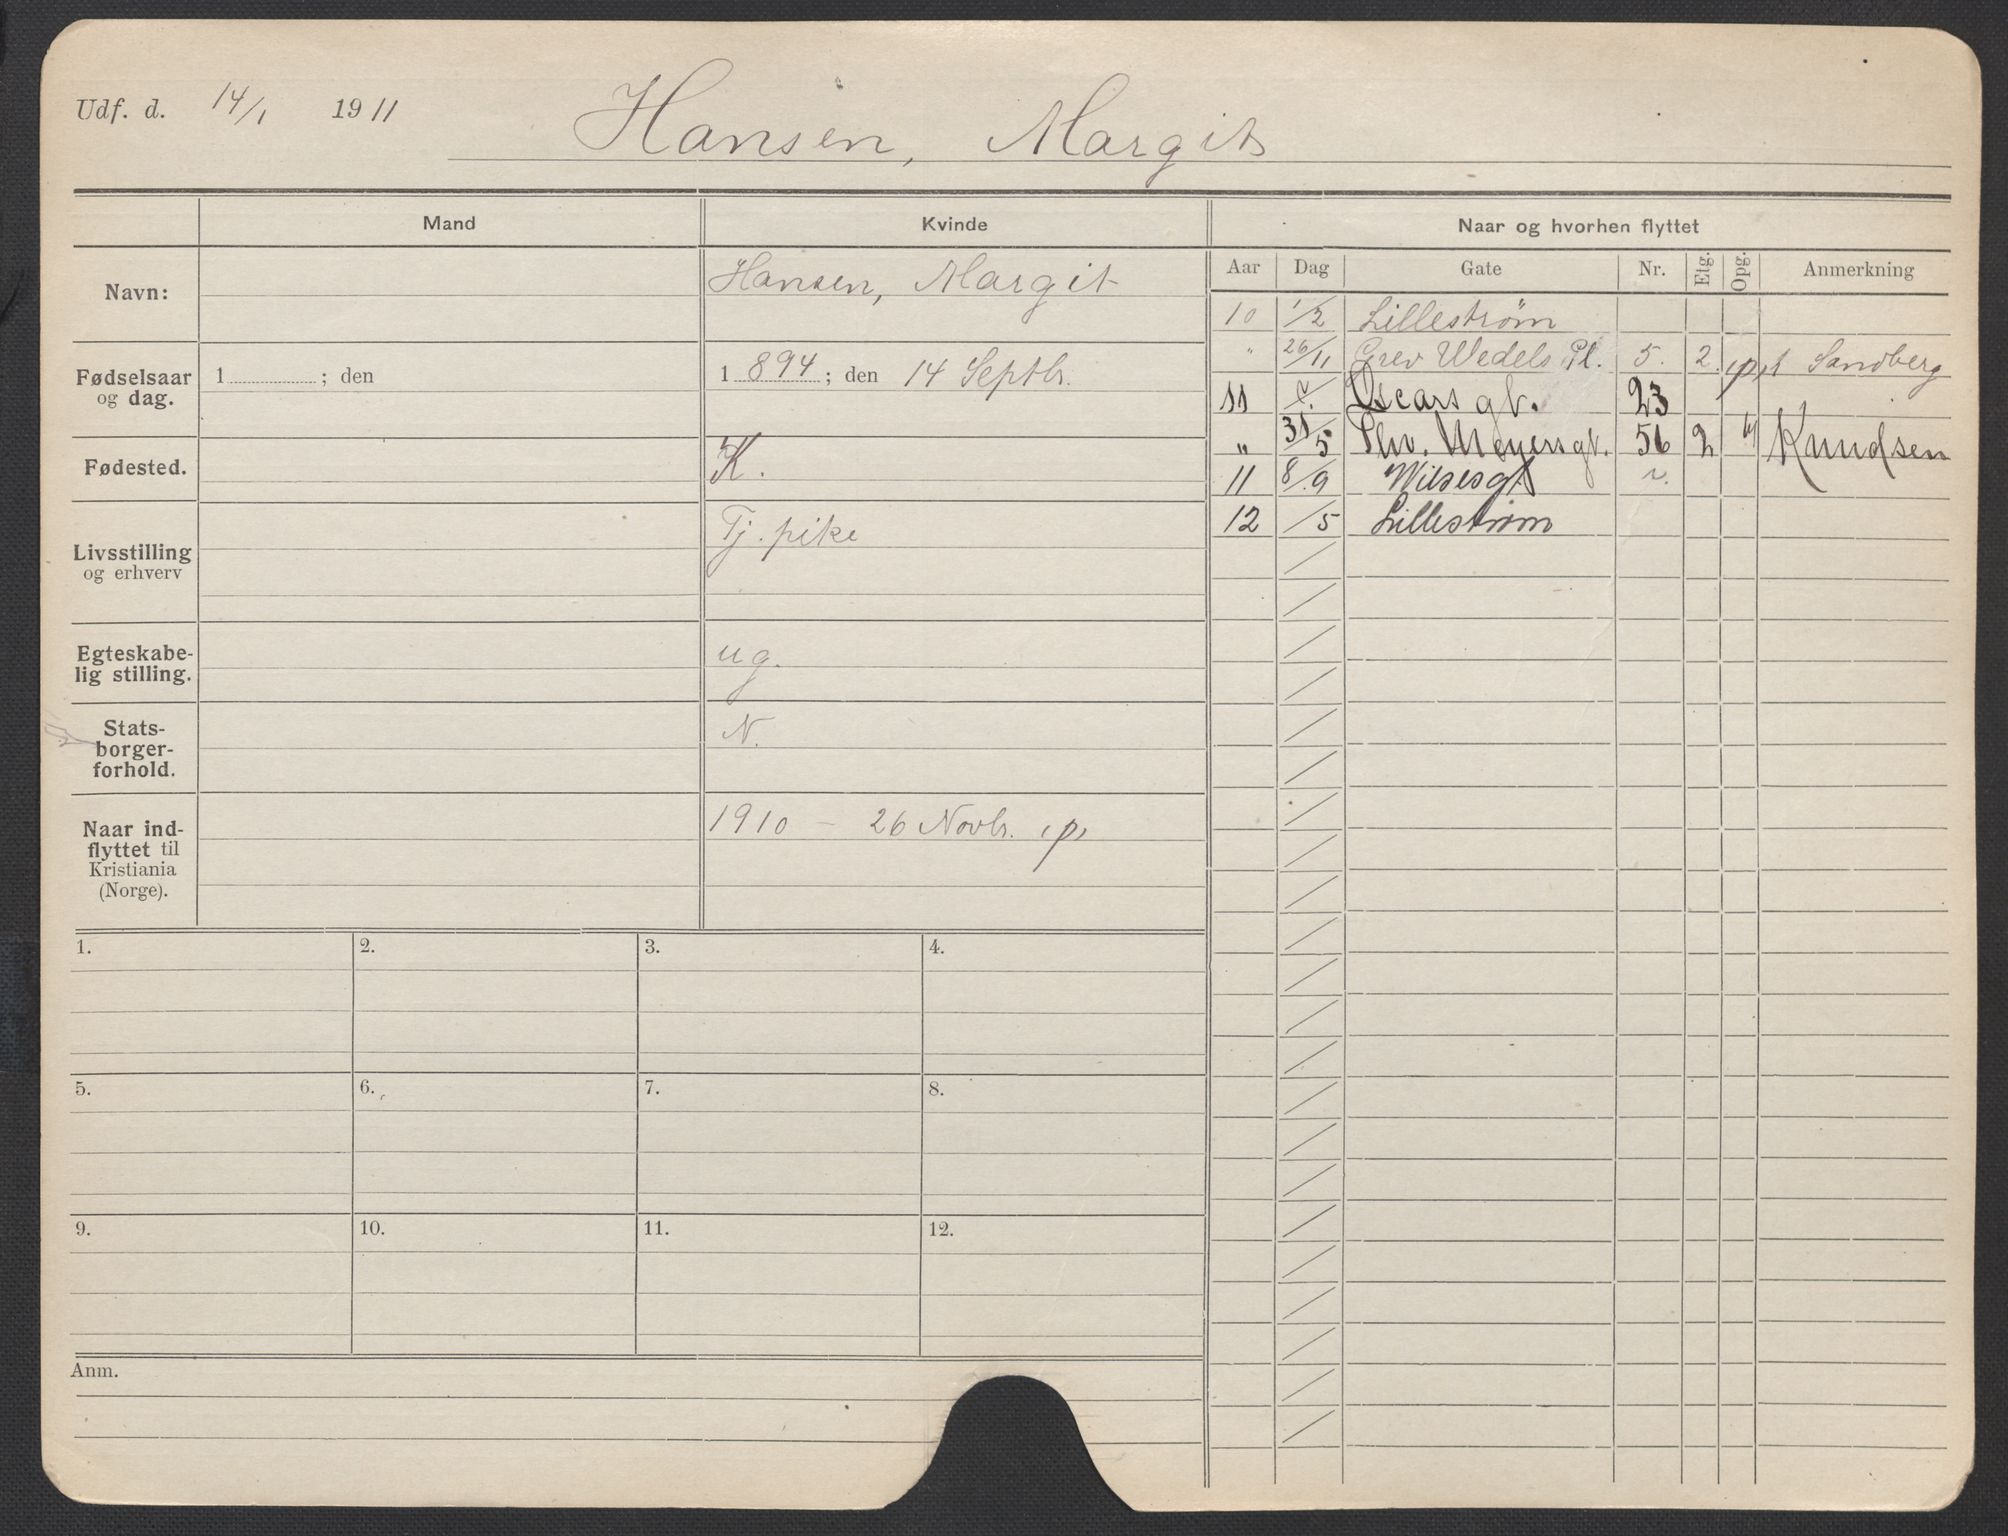 Udf. d. 14/1 1911 Hansen, Margit
Mand Kvinde Naar og hvorhen flyttet
Aar Dag Gate Nr. Etg. Opg. Anmerkning
Navn: Hansen, Margit
Fødselsaar og dag. 1 ; den 1 894 ; den 14 Septbr.
Fødested. K.
Livsstilling og erhverv Tj. pike
Egteskabe-
lig stilling. ug.
Stats-
borger-
forhold. N.
Naar ind-
flyttet til
Kristiania
(Norge). 1910 – 26 Novbr. (p)
10 1/2 Lillestrøm
" 26/11 Grev Wedels Pl. 5. 2. (p) t Sandberg
11 Oscarsgt. 23
" 31/5 Thv. Meyersgt. 56 2 Knudsen
11 8/9 Wilsesgt
12 /5 Lillestrøm
1. 2. 3. 4.
5. 6. 7. 8.
9. 10. 11. 12.
Anm.